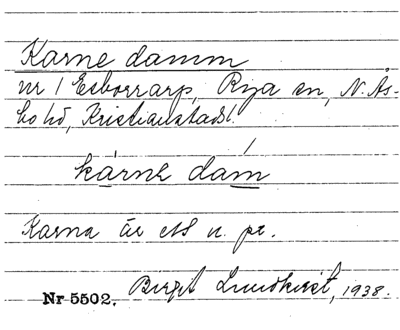 Karne damm
nr 1 Esborrarp, Rya sn, N. Ås-
bo hd, Kristianstads l.
kárnɛ dam
Karna är ett n. pr.
Birgit Lundkvist, 1938.
Nr 5502.